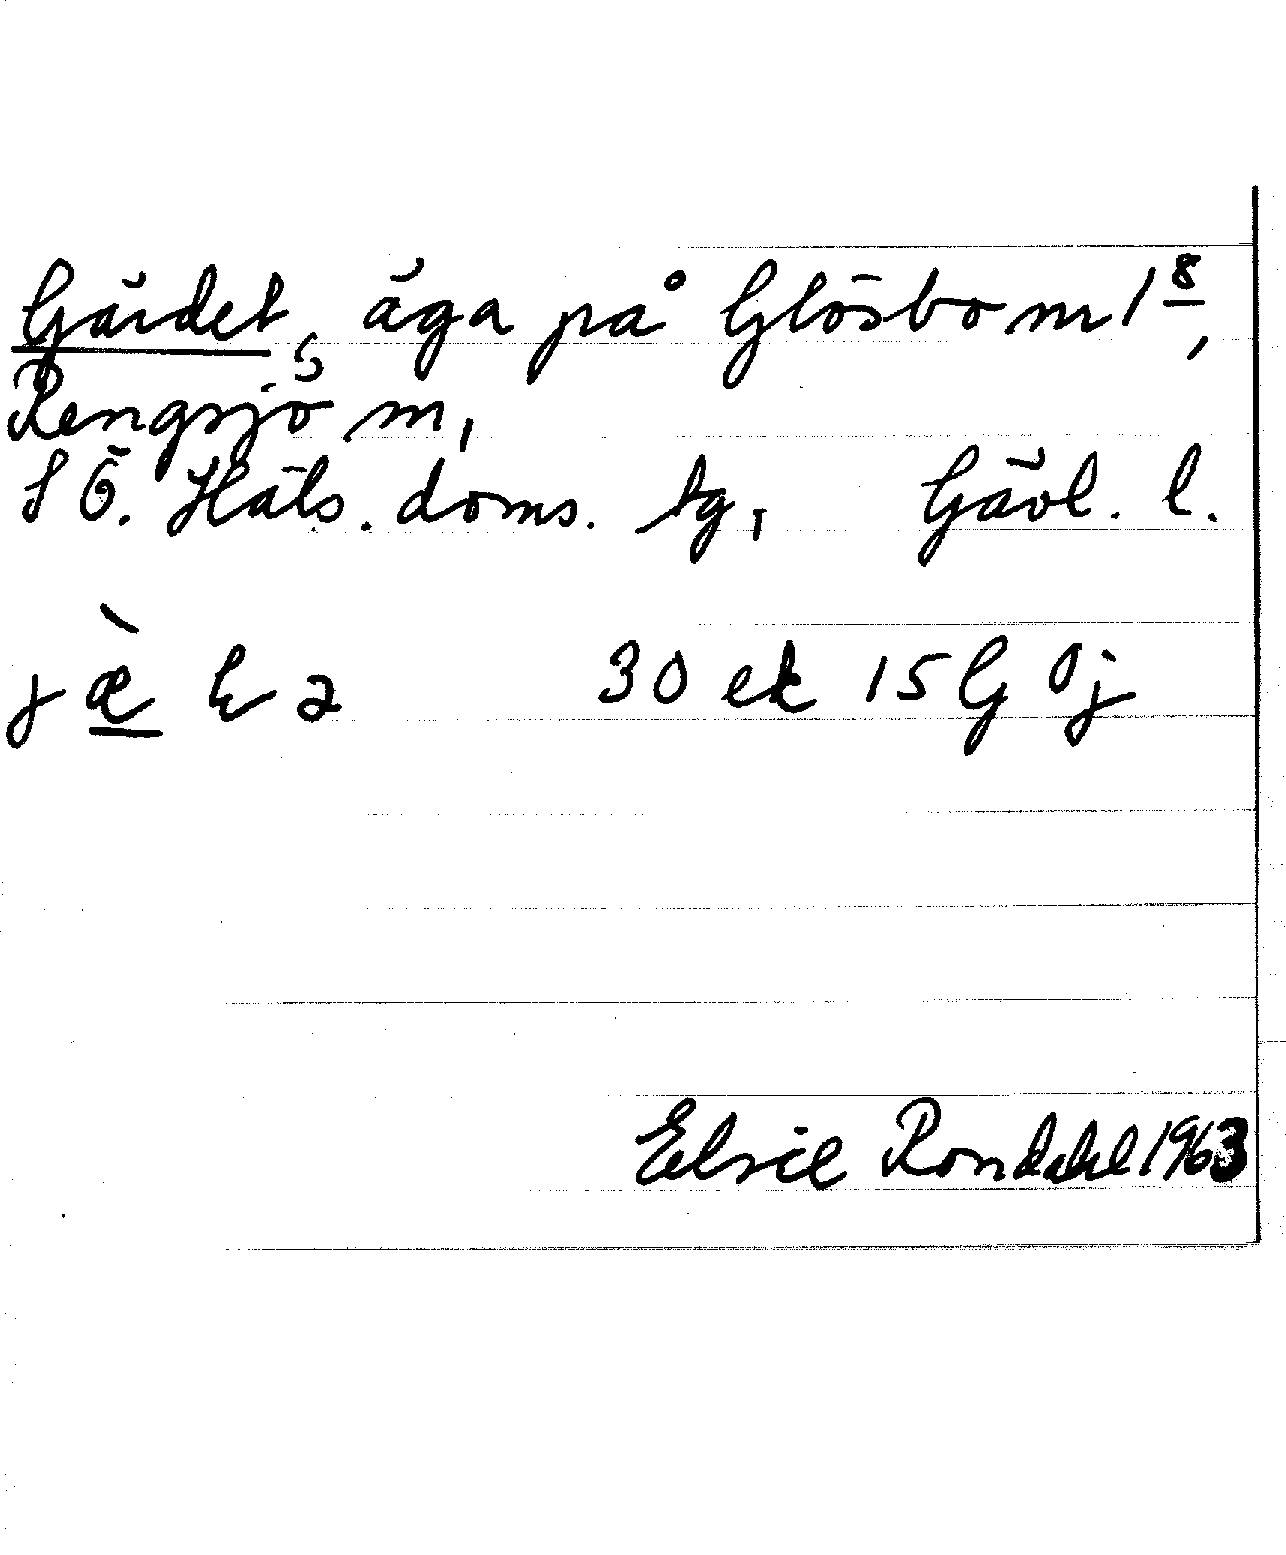 Gärdet, äga på Glösbo nr 1⁸,
Rengsjö sn,
S Ö. Häls. doms. tg, Gävl. l.
30 ek 15 G 0j
Elsie Rondahl 1963